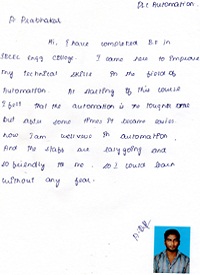 PLC Automation.
P. Prabhakar
Hi, I have completed BE in
Engg College. I came here to improve
my technical skills in the field of
Automation. At starting of this course
I felt that the automation is the toughest one
but after some times it became easier.
now I am well verse in automation.
And the staffs are easy going and
so friendly to me. so I could learn
without any fear.